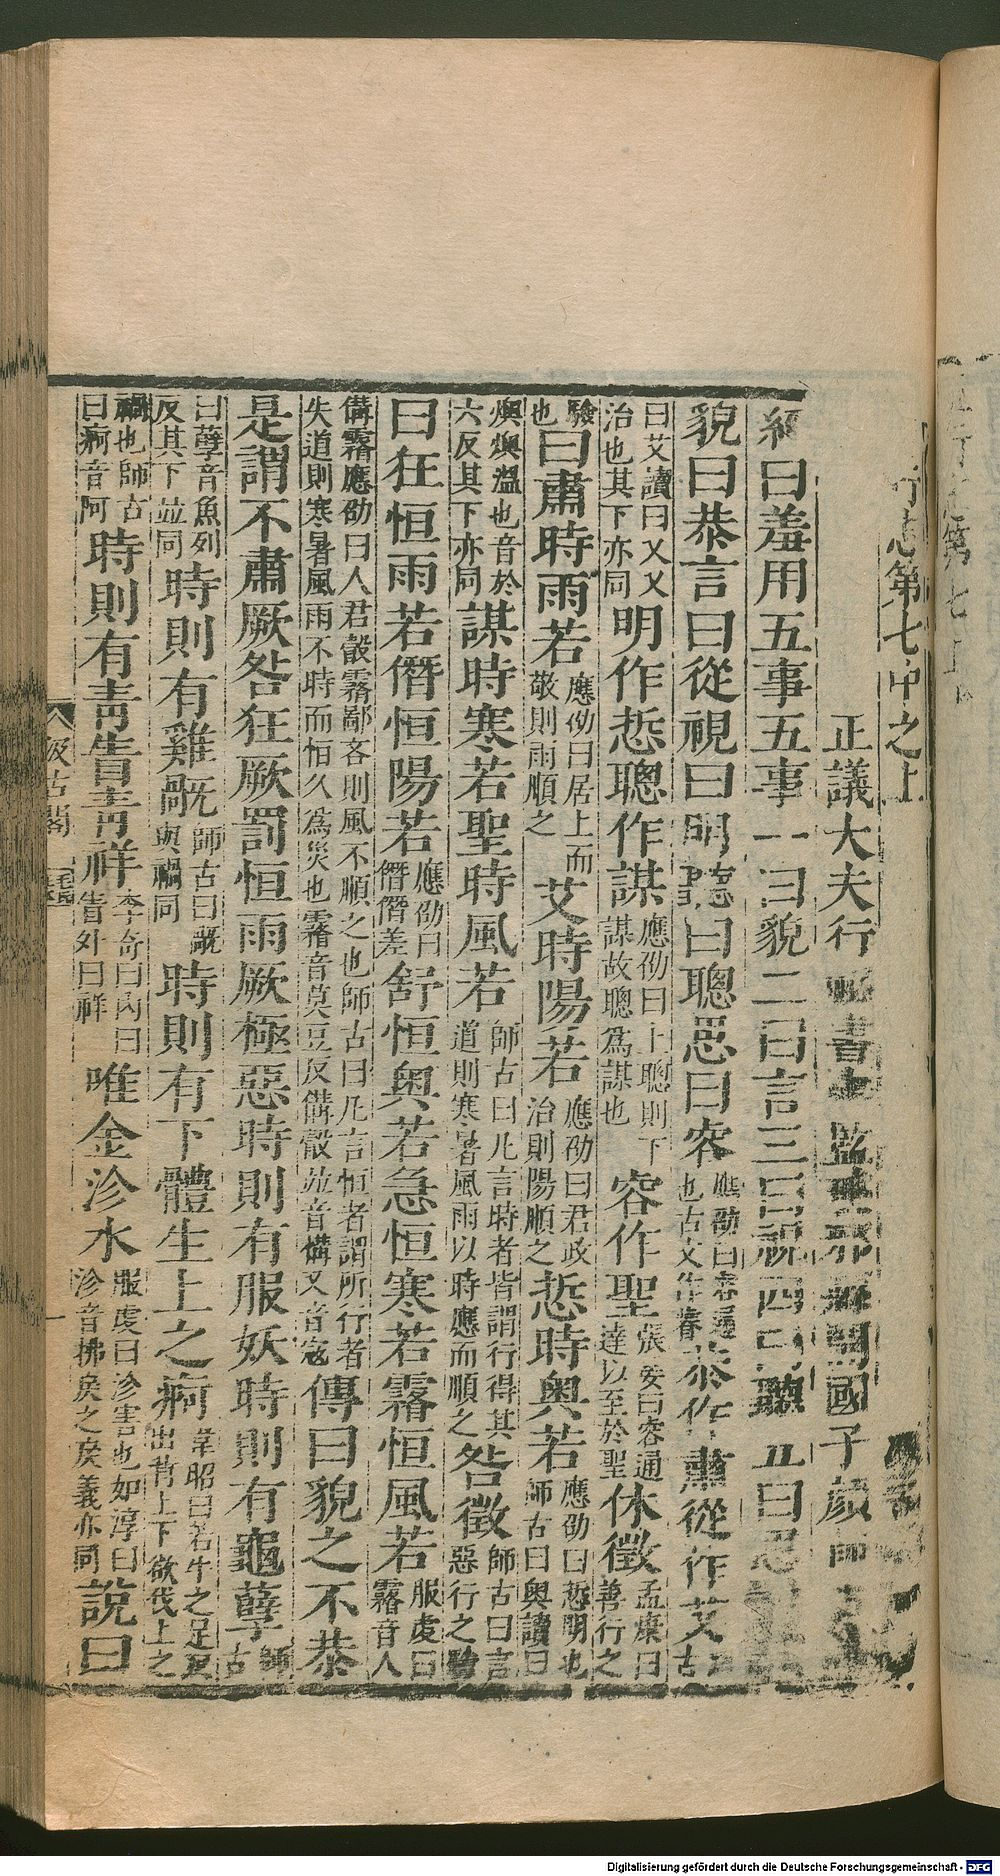 行志第七中之上
正議大夫行 書 監 開國子顔師
經曰羞用五事五事一曰貌二曰言三曰視四曰聽五曰思
貌曰恭言曰從視曰明聽曰聰思曰容應劭曰容通也古文作睿恭作肅從作艾
曰艾讀曰乂乂治也其下亦同明作悊聰作謀應劭曰上聰則下謀故聰為謀也容作聖張晏曰容通達以至於聖休徵孟康曰善行之
驗也曰肅時雨若應劭曰居上而敬則雨順之艾時陽若應劭曰君政治則陽順之悊時奥若應劭曰悊明也師古曰奥讀曰
燠燠溫也音於六反其下亦同謀時寒若聖時風若師古曰凡言時者皆謂行得其道則寒暑風雨以時應而順之咎徵師古曰言惡行之驗
曰狂恒雨若僭恒陽若應劭曰僭僭差舒恒奥若急恒寒若霿恒風若服虔曰霿音人
傋霿應劭曰人君瞉霿鄙吝則風不順之也師古曰凡言恒者謂所行者失道則寒暑風雨不時而恒久為災也霿音莫豆反傋瞉並音構又音寇傳曰貌之不恭
是謂不肅厥咎狂厥罰恒雨厥極惡時則有服妖時則有龜孽師古
曰孽音魚列反其下並同時則有雞旤師古曰旤與禍同時則有下體生上之痾韋昭曰若牛之足反出背上下欲伐上之
禍也師古曰痾音阿時則有青眚青祥李奇曰內曰眚外曰祥唯金沴水服虔曰沴害也如淳曰沴音拂戾之戾義亦同說曰
汲古閣
Digitalisierung gefördert durch die Deutsche Forschungsgemeinschaft - DFG